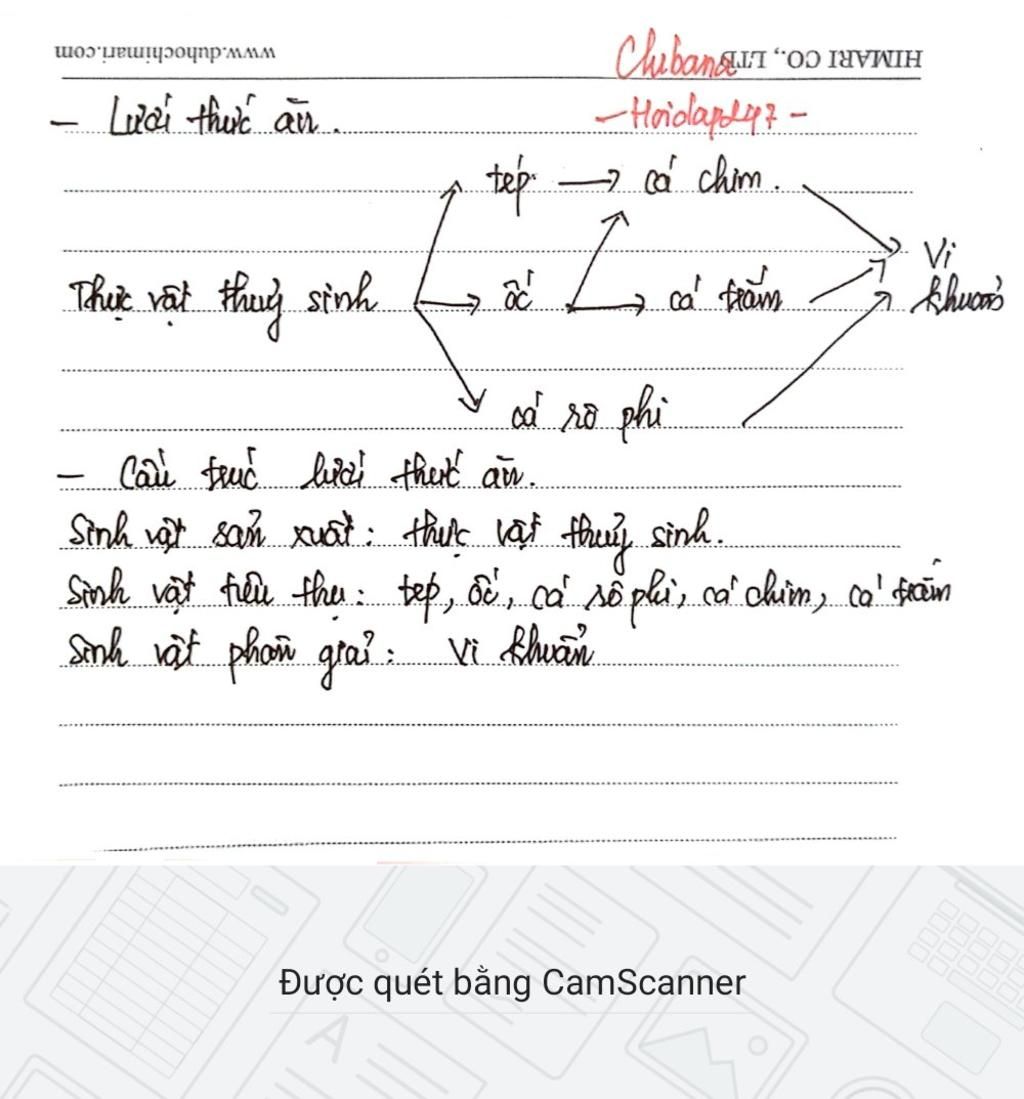 www.duhochimari.com
HIMARI CO., LTD
Chibana
- Hoidap247 -
- Lưới thức ăn.
tép → cá chim.
Thực vật thuỷ sinh → ốc → cá trắm
Vi khuẩn
cá rô phi
- Cấu trúc lưới thức ăn.
Sinh vật sản xuất: thực vật thuỷ sinh.
Sinh vật tiêu thụ: tép, ốc, cá rô phi, cá chim, cá trắm
Sinh vật phân giải: Vi khuẩn
Được quét bằng CamScanner